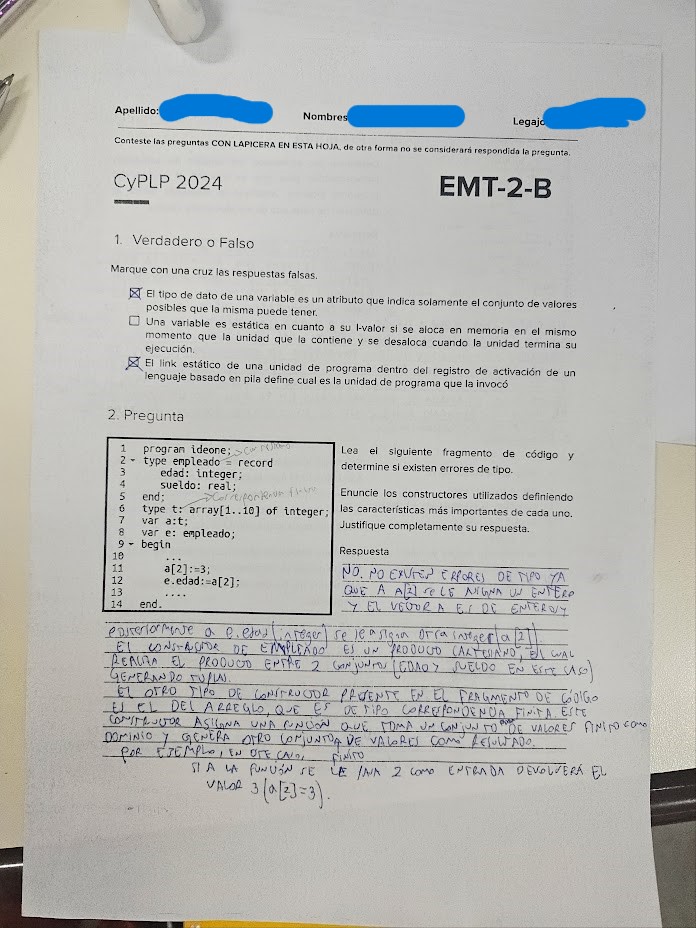 Apellido:
Nombres
Legajo
Conteste las preguntas CON LAPICERA EN ESTA HOJA, de otra forma no se considerará respondida la pregunta.
CyPLP 2024
EMT-2-B
1. Verdadero o Falso
Marque con una cruz las respuestas falsas.
El tipo de dato de una variable es un atributo que indica solamente el conjunto de valores
posibles que la misma puede tener.
Una variable es estática en cuanto a su l-valor si se aloca en memoria en el mismo
momento que la unidad que la contiene y se desaloca cuando la unidad termina su
ejecución.
El link estático de una unidad de programa dentro del registro de activación de un
lenguaje basado en pila define cual es la unidad de programa que la invocó
2. Pregunta
1 program ideone;
2 type empleado = record
3 edad: integer;
4 sueldo: real;
5 end;
6 type t: array[1..10] of integer;
7 var a:t;
8 var e: empleado;
9 begin
10 ...
11 a[2]:=3;
12 e.edad:=a[2];
13 ....
14 end.
Lea el siguiente fragmento de código y
determine si existen errores de tipo.
Enuncie los constructores utilizados definiendo
las características más importantes de cada uno.
Justifique completamente su respuesta.
Respuesta
NO. NO EXISTEN ERRORES DE TIPO YA
QUE A A[2] SE LE ASIGNA UN ENTERO
Y EL VECTOR A ES DE ENTEROS Y
posteriormente a e.edad (integer) se le asigna otro integer (a[2])
EL CONSTRUCTOR DE EMPLEADO ES UN PRODUCTO CARTESIANO, EL CUAL
REALIZA EL PRODUCTO ENTRE 2 CONJUNTOS (EDAD Y SUELDO EN ESTE CASO)
GENERANDO TUPLAS.
EL OTRO TIPO DE CONSTRUCTOR PRESENTE EN EL FRAGMENTO DE CÓDIGO
ES EL DEL ARREGLO, QUE ES DE TIPO CORRESPONDENCIA FINITA. ESTE
CONSTRUCTOR ASIGNA UNA FUNCIÓN QUE TOMA UN CONJUNTO DE VALORES FINITO COMO
DOMINIO Y GENERA OTRO CONJUNTO DE VALORES COMO RESULTADO.
FINITO
POR EJEMPLO, EN ESTE CASO,
SI A LA FUNCIÓN SE LE PASA 2 COMO ENTRADA DEVOLVERÁ EL
VALOR 3 (a[2]=3).